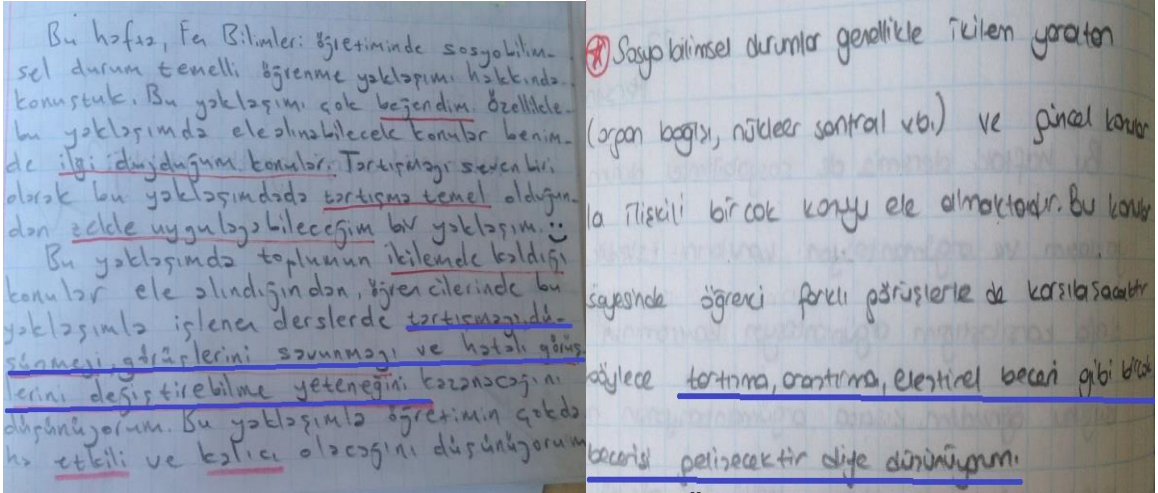 Bu hafta, Fen Bilimleri öğretiminde sosyobilim-
sel durum temelli öğrenme yaklaşımı hakkında
konuştuk. Bu yaklaşımı çok beğendim. Özellikle
bu yaklaşımda ele alınabilecek konular benim
de ilgi duyduğum konular. Tartışmayı seven biri
olarak bu yaklaşımdada tartışma temel olduğun-
dan zevkle uygulayabileceğim bir yaklaşım.
Bu yaklaşımda toplumun ikilemde kaldığı
konular ele alındığından, öğrencilerinde bu
yaklaşımla işlenen derslerde tartışmayı, dü-
şünmeyi, görüşlerini savunmayı ve hatalı görüş-
lerini değiştirebilme yeteneğini kazanacağını
düşünüyorum. Bu yaklaşımla öğretimin çokda
ha etkili ve kalıcı olacağını düşünüyorum
Sosyobilimsel durumlar genellikle ikilem yaratan
(organ bağışı, nükleer santral vb.) ve güncel konular
la ilişkili birçok konuyu ele almaktadır. Bu konular
sayesinde öğrenci farklı görüşlerle de karşılaşacaktır
böylece tartışma, araştırma, eleştirel beceri gibi birçok
becerisi gelişecektir diye düşünüyorum.